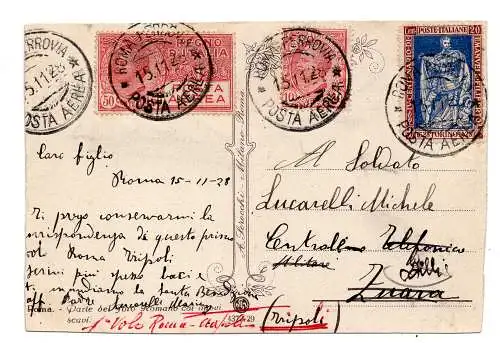 ROMA FERROVIA
15.11.28
POSTA AEREA
ROMA FERROVIA
15.11.28
POSTA AEREA
50
POSTA AEREA
ROMA FERROVIA
15.11.28
POSTA AEREA
POSTE ITALIANE 20
ROMA
POSTA AEREA
TORINO 1928
Caro figlio
Roma 15-11-28
Ti prego conservarmi la
corrispondenza di questo primo
vol Roma Tripoli
scrivi più spesso baci e
t. mandiamo la santa Benedizione
aff. Padre Lucarelli
Roma. - Parte del Foro Romano coi nuovi
scavi.
1° Volo Roma-Tripoli
A. Scrocchi - Milano-Roma
4372-29
Al Soldato
Lucarelli Michele
Centrale Telefonica
Militare
Zuara
(Tripoli)